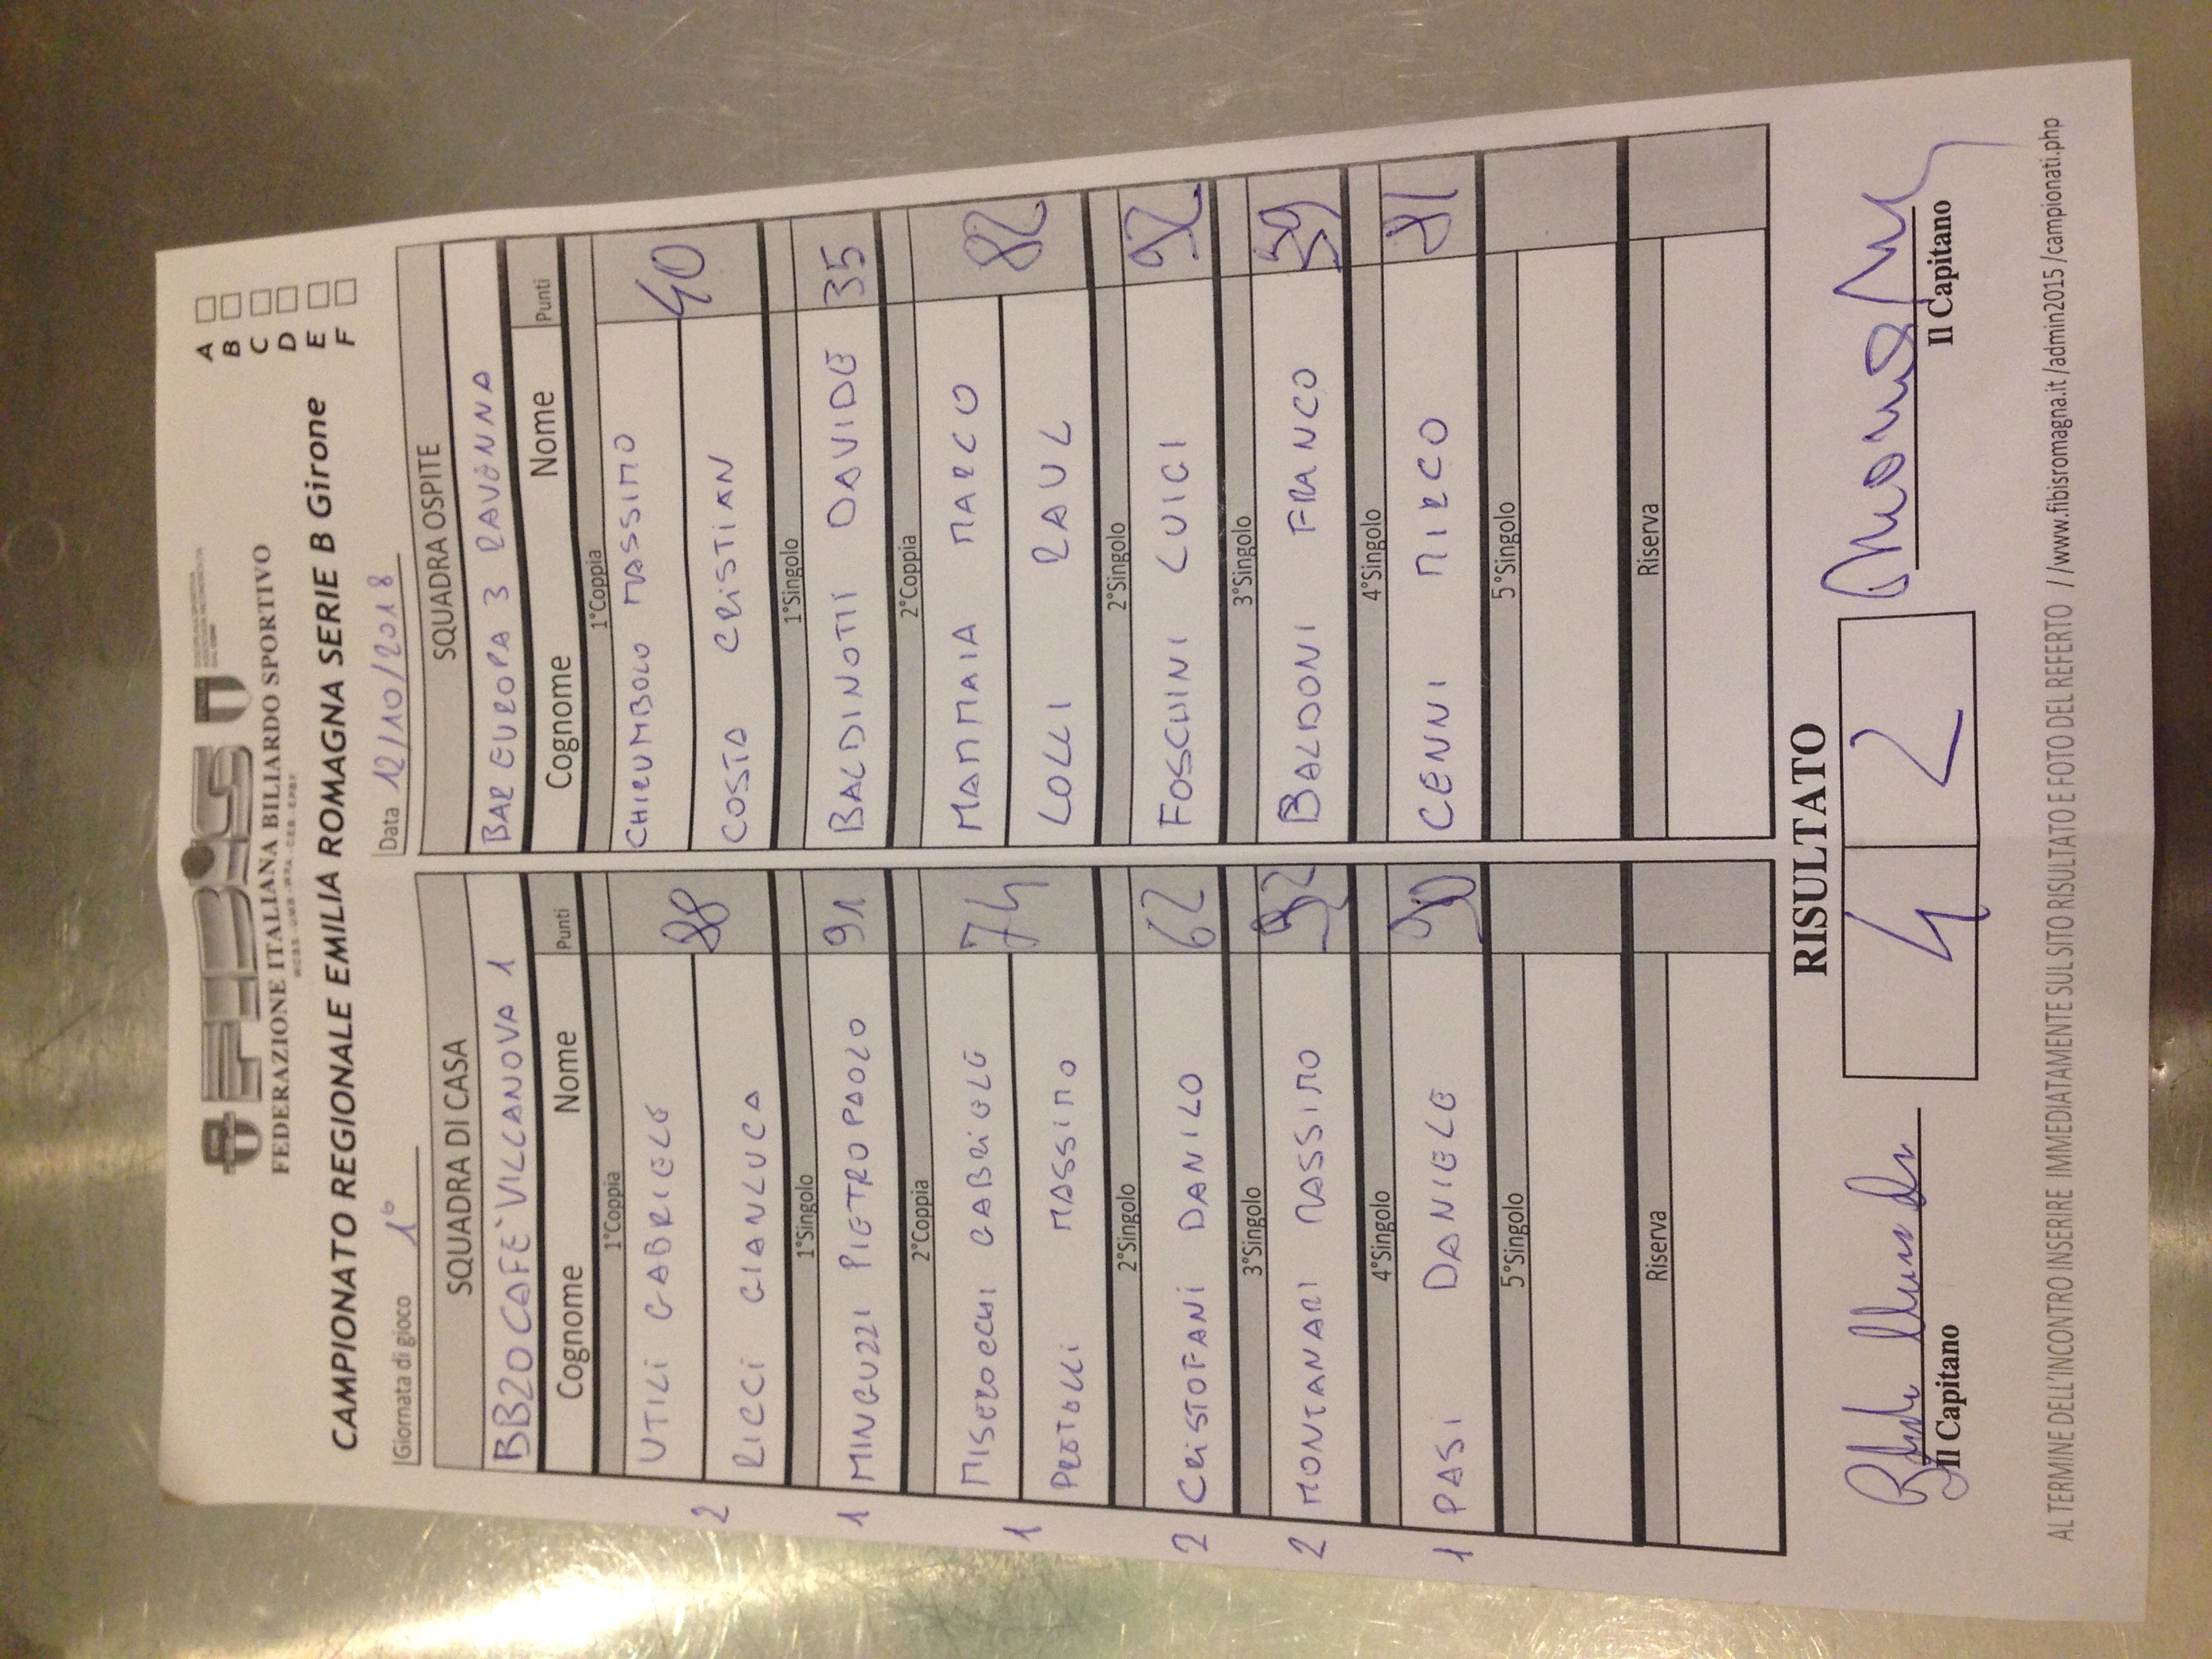 FEBIS
FEDERAZIONE ITALIANA BILIARDO SPORTIVO
CAMPIONATO REGIONALE EMILIA ROMAGNA SERIE B Girone
A
B
C
D
E
F
Giornata di gioco 1°
Data 12/10/2018
SQUADRA DI CASA
BB20 CAFE' VILLANOVA 1
Cognome Nome Punti
1°Coppia
UTILI GABRIELE
2 88
RICCI GIANLUCA
1°Singolo
1 MINGUZZI PIETROPAOLO 91
2°Coppia
MISEROCCHI GABRIELE
1 74
MASSIMO
2°Singolo
2 CRISTOFANI DANILO 62
3°Singolo
2 MONTANARI MASSIMO 92
4°Singolo
1 PASI DANIELE 90
5°Singolo
Riserva
SQUADRA OSPITE
BAR EUROPA 3 RAVENNA
Cognome Nome Punti
1°Coppia
CHIRUMBOLO MASSIMO
40
COSTA CRISTIAN
1°Singolo
BALDINOTTI DAVIDE 35
2°Coppia
MAMMAIA MARCO
82
LOLLI RAUL
2°Singolo
FOSCHINI LUIGI 92
3°Singolo
BALDONI FRANCO 59
4°Singolo
CENNI MIRCO
5°Singolo
Riserva
RISULTATO
4 2
Il Capitano
Il Capitano
AL TERMINE DELL'INCONTRO INSERIRE IMMEDIATAMENTE SUL SITO RISULTATO E FOTO DEL REFERTO //www.fibisromagna.it/admin2015/campionati.php